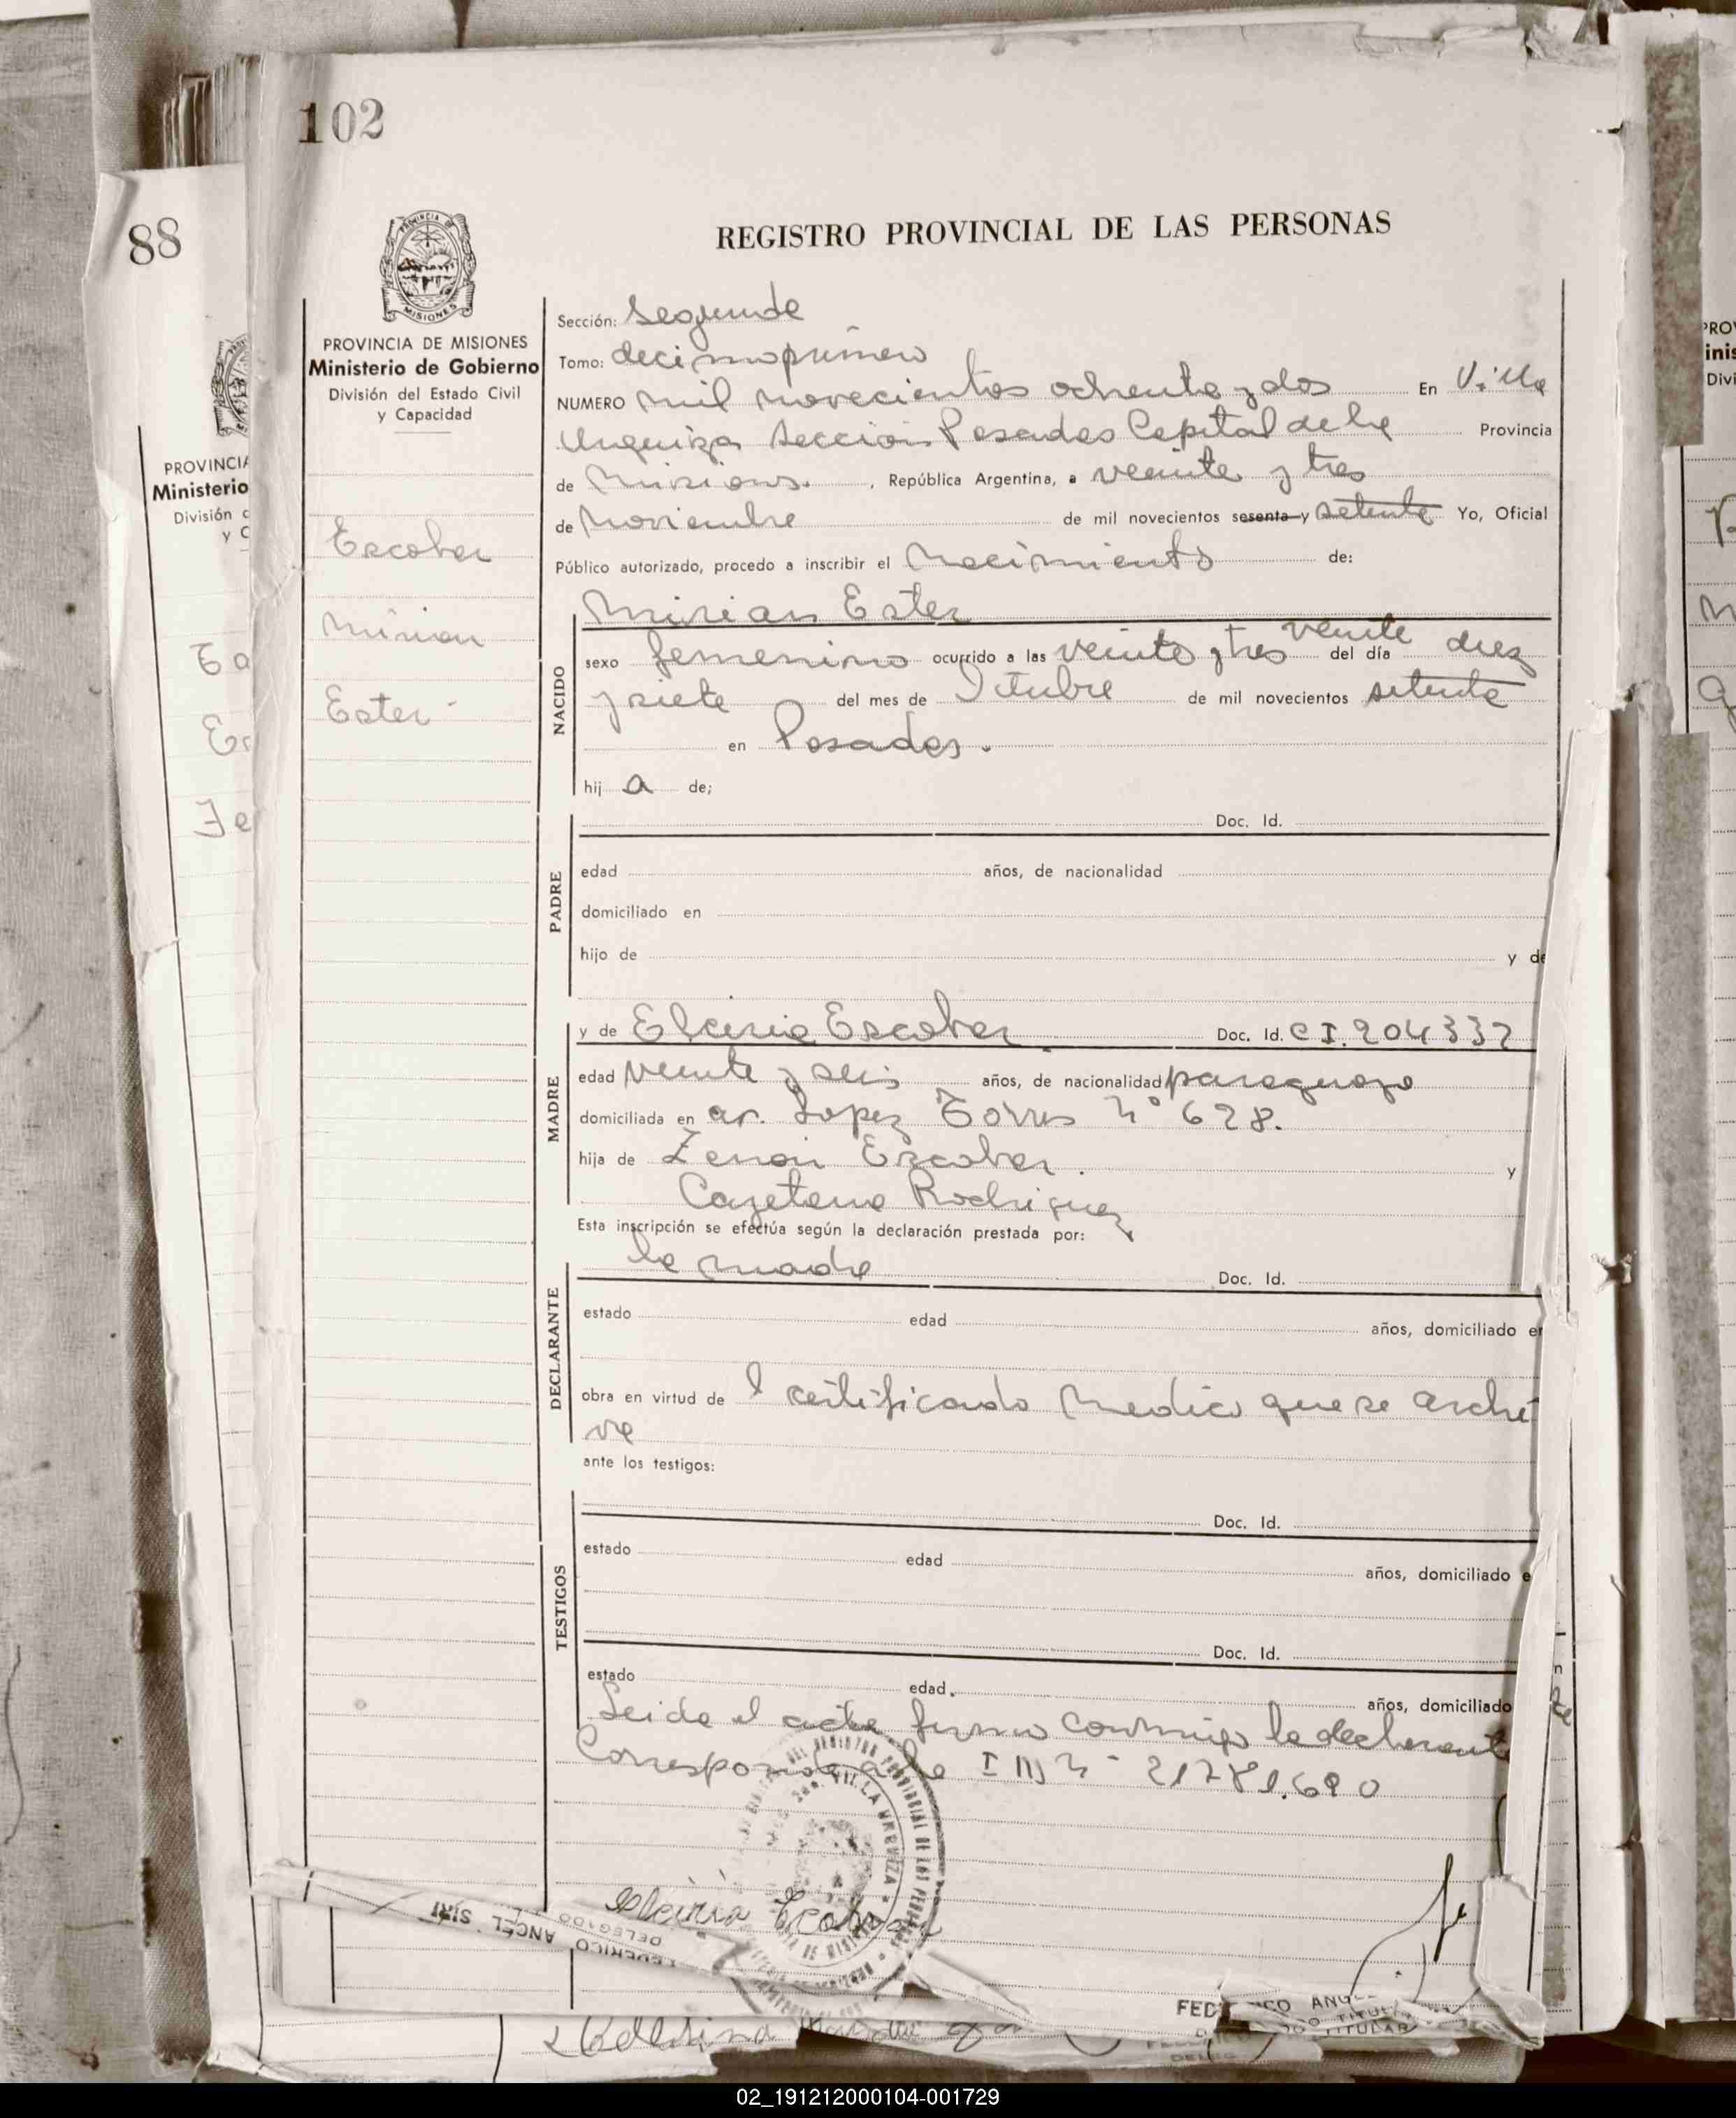 102
88
REGISTRO PROVINCIAL DE LAS PERSONAS
PROVINCIA DE MISIONES
Ministerio de Gobierno
División del Estado Civil
y Capacidad
Escobar
Mirian
Ester
Sección: Segunda
Tomo: decimoprimero
NUMERO mil novecientos ochenta y dos En Villa
Urquiza Sección Posadas Capital de la Provincia
de Misiones. , República Argentina, a veinte y tres
de Noviembre de mil novecientos sesenta y setenta Yo, Oficial
Público autorizado, procedo a inscribir el Nacimiento de:
Mirian Ester
NACIDO
sexo femenino ocurrido a las veinte y tres veinte del día diez
y siete del mes de Octubre de mil novecientos setenta
en Posadas.
hij a de;
PADRE
Doc. Id.
edad años, de nacionalidad
domiciliado en
hijo de y de
MADRE
y de Elciria Escobar Doc. Id. C I. 204332
edad veinte y seis años, de nacionalidad paraguaya
domiciliada en av. Lopez Torres Nº 628.
hija de Zenon Escobar. y
Cayetana Rodriguez
Esta inscripción se efectúa según la declaración prestada por:
DECLARANTE
la madre Doc. Id.
estado edad años, domiciliado en
obra en virtud de l certificado medico que se archi
va
ante los testigos:
TESTIGOS
Doc. Id.
estado edad años, domiciliado e
Doc. Id.
estado edad. años, domiciliado
Leida el acta firma conmigo la declarante
Corresponde a la I M N- 21781.690
Elciria Escobar
FEDERICO ANGEL SIRI
DELEGADO
FED CO ANG
TITULAR
PROVINCIA
Ministerio
División
y C
02_191212000104-001729